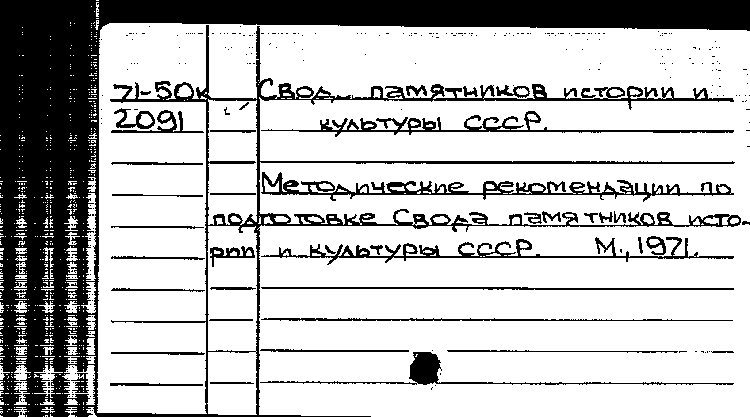 71-50к Свод памятников истории и
2091 культуры СССР.
Методические рекомендации по
подготовке Свода памятников исто-
рии и культуры СССР. М., 1971.